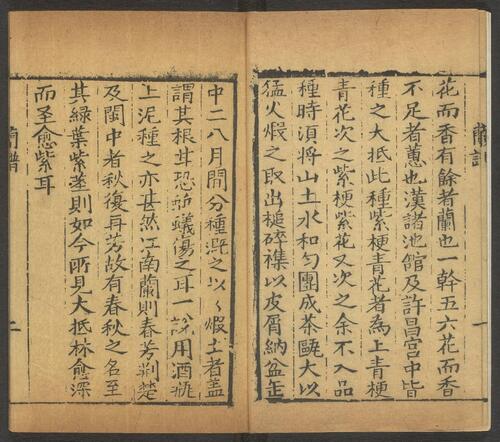 花而香有餘者蘭也一幹五六花而香
不足者蕙也漢諸池館及許昌宮中皆
種之大抵此種紫梗青花者為上青梗
青花次之紫梗紫花又次之余不入品
種時須將山土水和勻團成茶甌大以
猛火煆之取出槌碎襍以皮屑納盆缶
中二八月間分種溉之以人煆土者盖
謂其根甘恐蚯蟻傷之耳一說用酒瓶
上泥種之亦甚然江南蘭則春芳荆楚
及閩中者秋復再芳故有春秋之名至
其緑葉紫莖則如今所見大抵林愈深
而茎愈紫耳
蘭譜
二